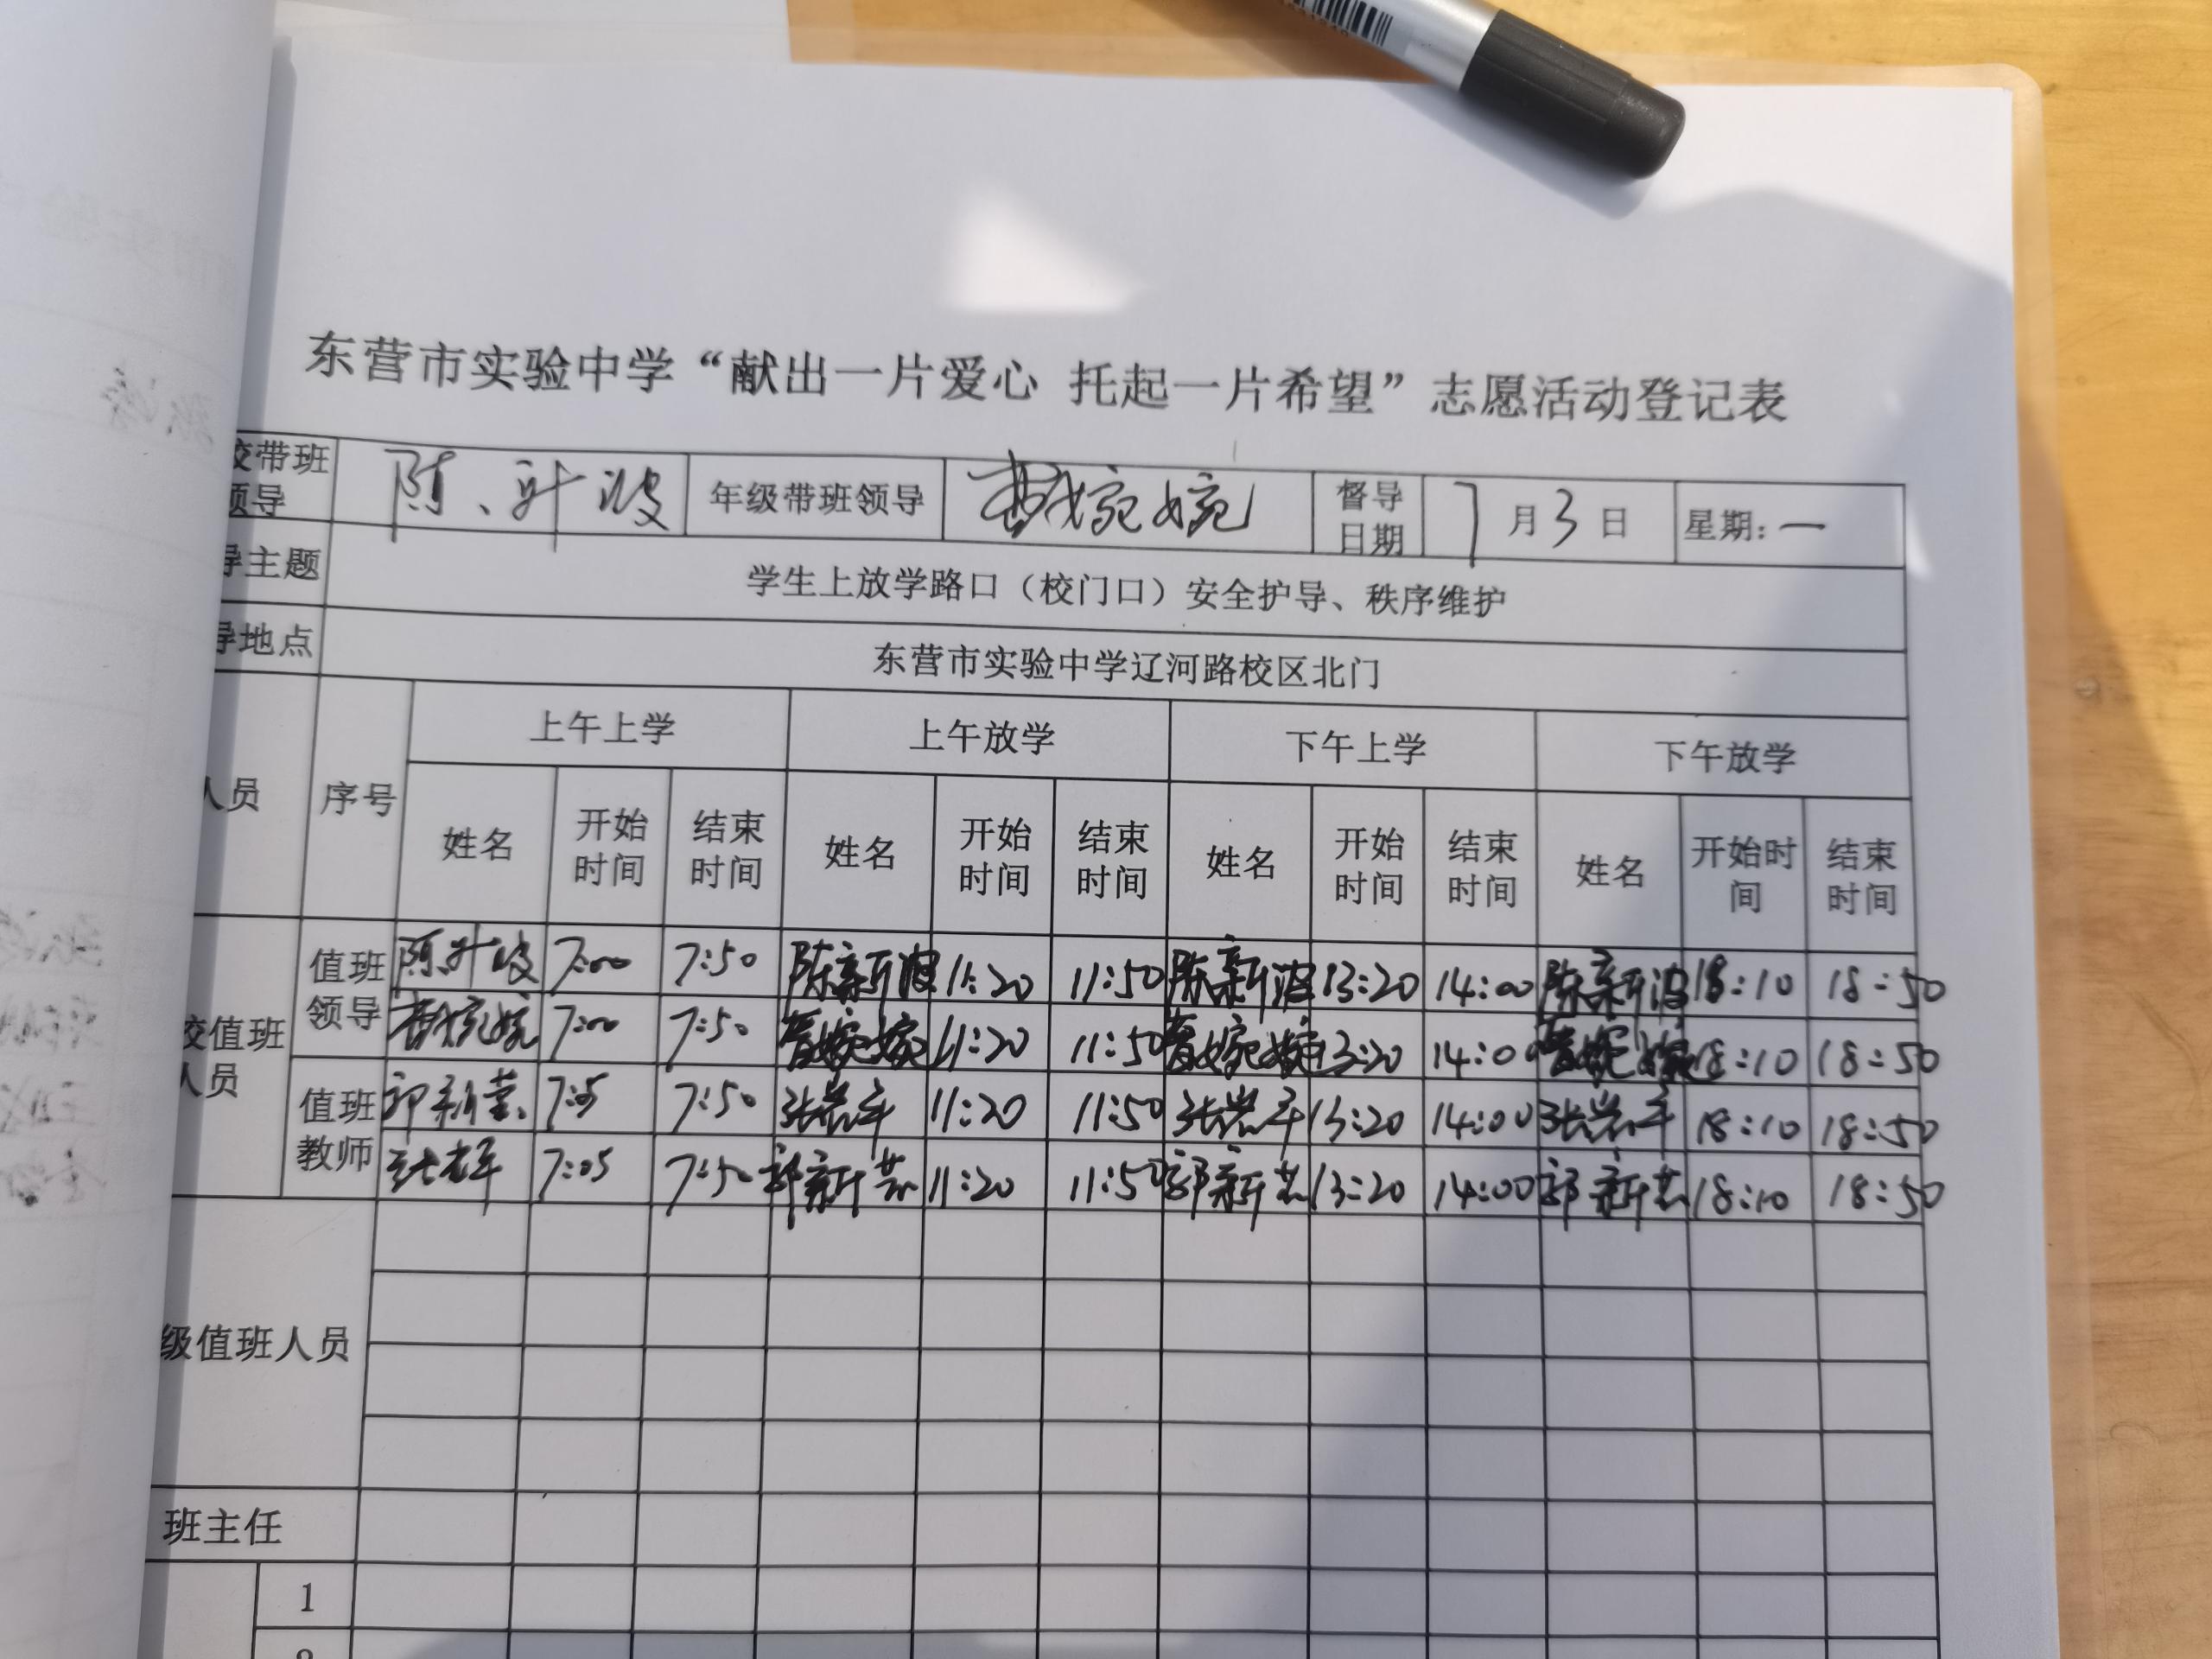 东营市实验中学“献出一片爱心 托起一片希望”志愿活动登记表
校带班领导 年级带班领导 督导日期 7月3日 星期：一
导主题 学生上放学路口（校门口）安全护导、秩序维护
导地点 东营市实验中学辽河路校区北门
人员 序号 上午上学 上午放学 下午上学 下午放学
姓名 开始时间 结束时间 姓名 开始时间 结束时间 姓名 开始时间 结束时间 姓名 开始时间 结束时间
校值班人员
值班领导 7:00 7:50 陈新波 11:20 11:50 陈新波 13:20 14:00 陈新波 18:10 18:50
7:00 7:50 11:20 11:50 13:20 14:00 18:10 18:50
值班教师 7:05 7:50 张岩军 11:20 11:50 张岩军 13:20 14:00 张岩军 18:10 18:50
7:05 7:50 11:20 11:50 13:20 14:00 18:10 18:50
级值班人员
班主任
1